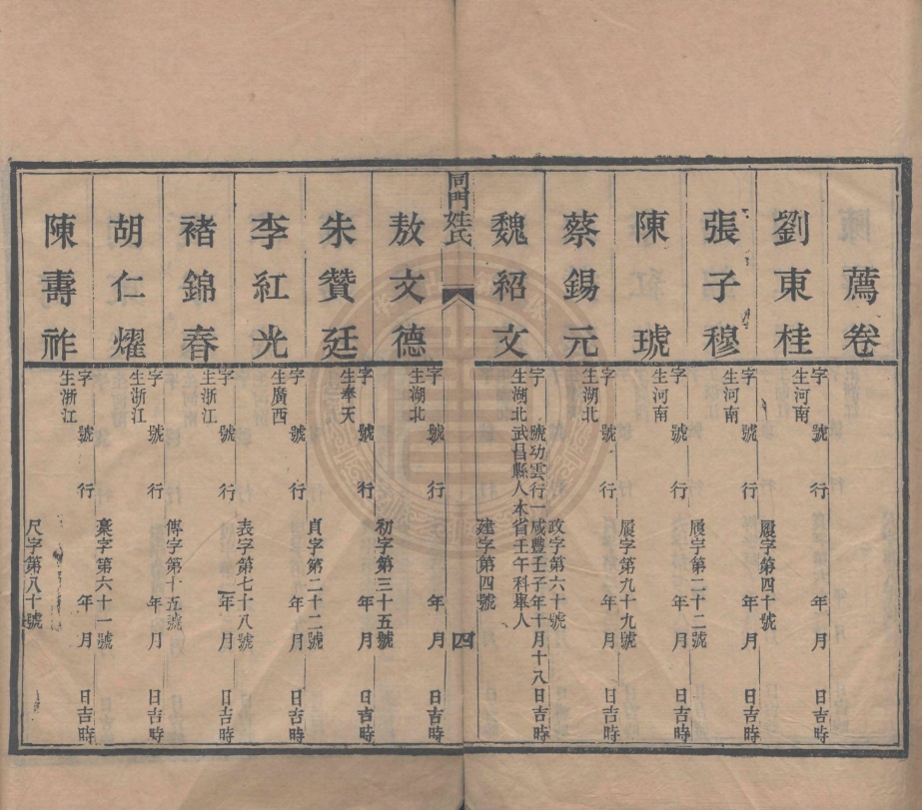 薦卷
劉東桂
字 號 行 年 月 日吉時
生河南
履字第四十號
張子穆
字 號 行 年 月 日吉時
生河南
履字第二十二號
陳琥
字 號 行 年 月 日吉時
生河南
履字第九十九號
蔡錫元
字 號 行 年 月 日吉時
生湖北
政字第六十號
魏紹文
字 號功雲行一咸豐壬子年十月十八日吉時
生湖北武昌縣人本省壬午科舉人
建字第四號
同門姓氏
四
敖文德
字 號 行 年 月 日吉時
生湖北
初字第三十五號
朱贊廷
字 號 行 年 月 日吉時
生奉天
貞字第二十二號
李紅光
字 號 行 年 月 日吉時
生廣西
表字第七十八號
褚錦春
字 號 行 年 月 日吉時
生浙江
傳字第十五號
胡仁燿
字 號 行 年 月 日吉時
生浙江
稟字第六十一號
陳壽祚
字 號 行 年 月 日吉時
生浙江
尺字第八十號